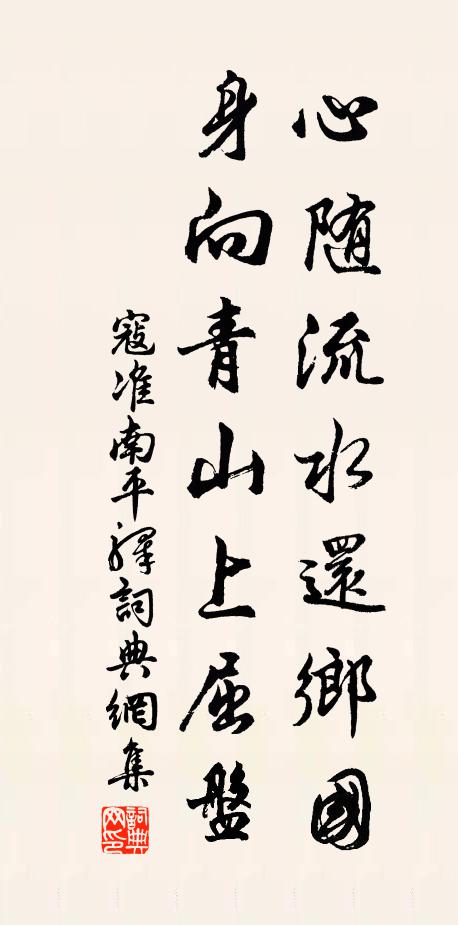 心随流水還鄉國
身向青山上屈盤
寇准南平驛詞典網集
詞典网印